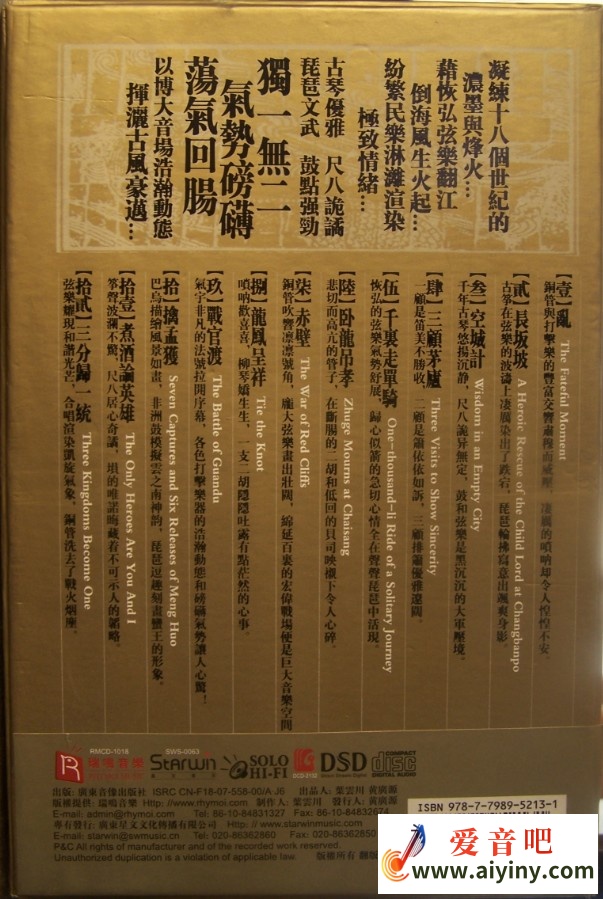 凝練十八個世紀的
濃墨與烽火…
藉恢弘弦樂翻江
倒海風生火起…
紛繁民樂淋灕渲染
極致情緒…
古琴優雅　尺八詭譎
琵琶文武　鼓點强勁
獨一無二
氣勢磅礴
蕩氣回腸
以博大音場浩瀚動態
揮灑古風豪邁…
【壹】亂 The Fateful Moment
銅管與打擊樂的豐富交響肅穆而威壓，凄厲的嗩吶却令人惶惶不安。
【貳】長坂坡 A Heroic Rescue of the Child Lord at Changbanpo
古筝在弦樂的波濤上凄厲染出了跌宕，琵琶輪拂寫意出颯爽身影。
【叁】空城計 Wisdom in an Empty City
千年古琴悠揚沉静，尺八詭异無定，鼓和弦樂是黑沉沉的大軍壓境。
【肆】三顧茅廬 Three Visits to Show Sincerity
一顧是笛美不勝收，二顧是簫依依如訴，三顧排簫優雅遼闊。
【伍】千裏走單騎 One-thousand-li Ride of a Solitary Journey
恢弘的弦樂氣勢舒展，歸心似箭的急切心情全在聲聲琵琶中活現。
【陸】卧龍吊孝 Zhuge Mourns at Chaisang
悲切而高亢的管子，在斷腸的二胡和低回的貝司映襯下令人心碎。
【柒】赤壁 The War of Red Cliffs
銅管吹響凛凛號角，龐大弦樂畫出壯闊，綿延百裏的宏偉戰場便是巨大音樂空間
【捌】龍鳳呈祥 Tie the Knot
嗩吶歡喜喜，柳琴嬌生生，一支二胡隱隱吐露有點茫然的心事。
【玖】戰官渡 The Battle of Guandu
氣宇非凡的法號拉開序幕，各色打擊樂器的浩瀚動態和磅礴氣勢讓人心驚！
【拾】擒孟獲 Seven Captures and Six Releases of Meng Huo
巴烏描繪風景如畫，非洲鼓模擬雲之南神韵，琵琶逗趣刻畫蠻王的形象。
【拾壹】煮酒論英雄 The Only Heroes Are You And I
筝聲波瀾不驚，尺八居心奇譎，塤的唯諾晦藏着不可示人的韜略。
【拾貳】三分歸一統 Three Kingdoms Become One
弦樂韡現和諧光芒，合唱渲染凱旋氣象，銅管洗去了戰火烟塵。
RMCD-1018
瑞鳴音樂
SWS-0063
Starwin
SOLO
HI-FI
DSD
COMPACT
disc
DIGITAL AUDIO
出版: 廣東音像出版社 ISRC CN-F18-07-558-00/A J6 出品人: 葉雲川 黄廣源
版權提供: 瑞鳴音樂 Http://www.rhymoi.com 制作人: 葉雲川 發行人: 黄廣源
E-mail: admin@rhymoi.com Tel: 86-10-84831327 Fax: 86-10-84832674
專有發行: 廣東星文文化傳播有限公司 Http://www.starwinmusic.com
E-mail: starwin@swmusic.cn Tel: 020-86362860 Fax: 020-86362850
P&C All rights of manufacturer and of the recorded work reserved.
Unauthorized duplication is a violation of applicable law. 版權所有 翻版
ISBN 978-7-7989-5213-1
爱音吧
www.aiyiny.com